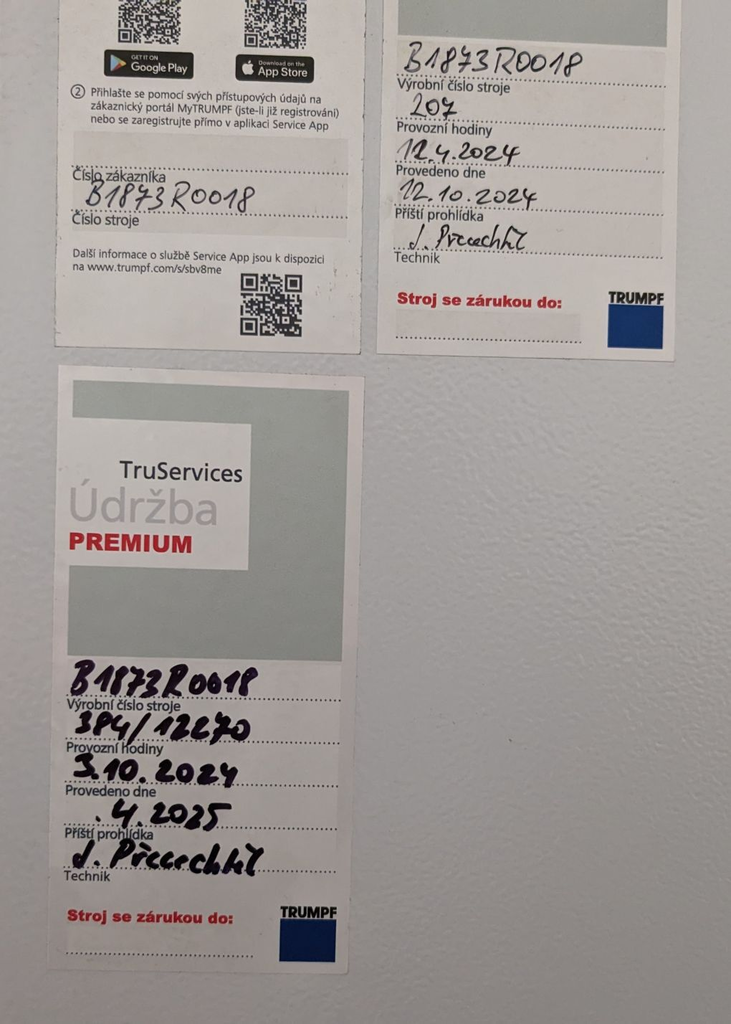 GET IT ON
Google Play
Download on the
App Store
② Přihlašte se pomocí svých přístupových údajů na
zákaznický portál MyTRUMPF (jste-li již registrováni)
nebo se zaregistrujte přímo v aplikaci Service App
Číslo zákazníka
B1873R0018
Číslo stroje
Další informace o službě Service App jsou k dispozici
na www.trumpf.com/s/sbv8me
B1873R0018
Výrobní číslo stroje
207
Provozní hodiny
12.4.2024
Provedeno dne
12.10.2024
Příští prohlídka
J.
Technik
Stroj se zárukou do:
TRUMPF
TruServices
Údržba
PREMIUM
B1873R0018
Výrobní číslo stroje
384/12270
Provozní hodiny
3.10.2024
Provedeno dne
.4.2025
Příští prohlídka
J.
Technik
Stroj se zárukou do:
TRUMPF